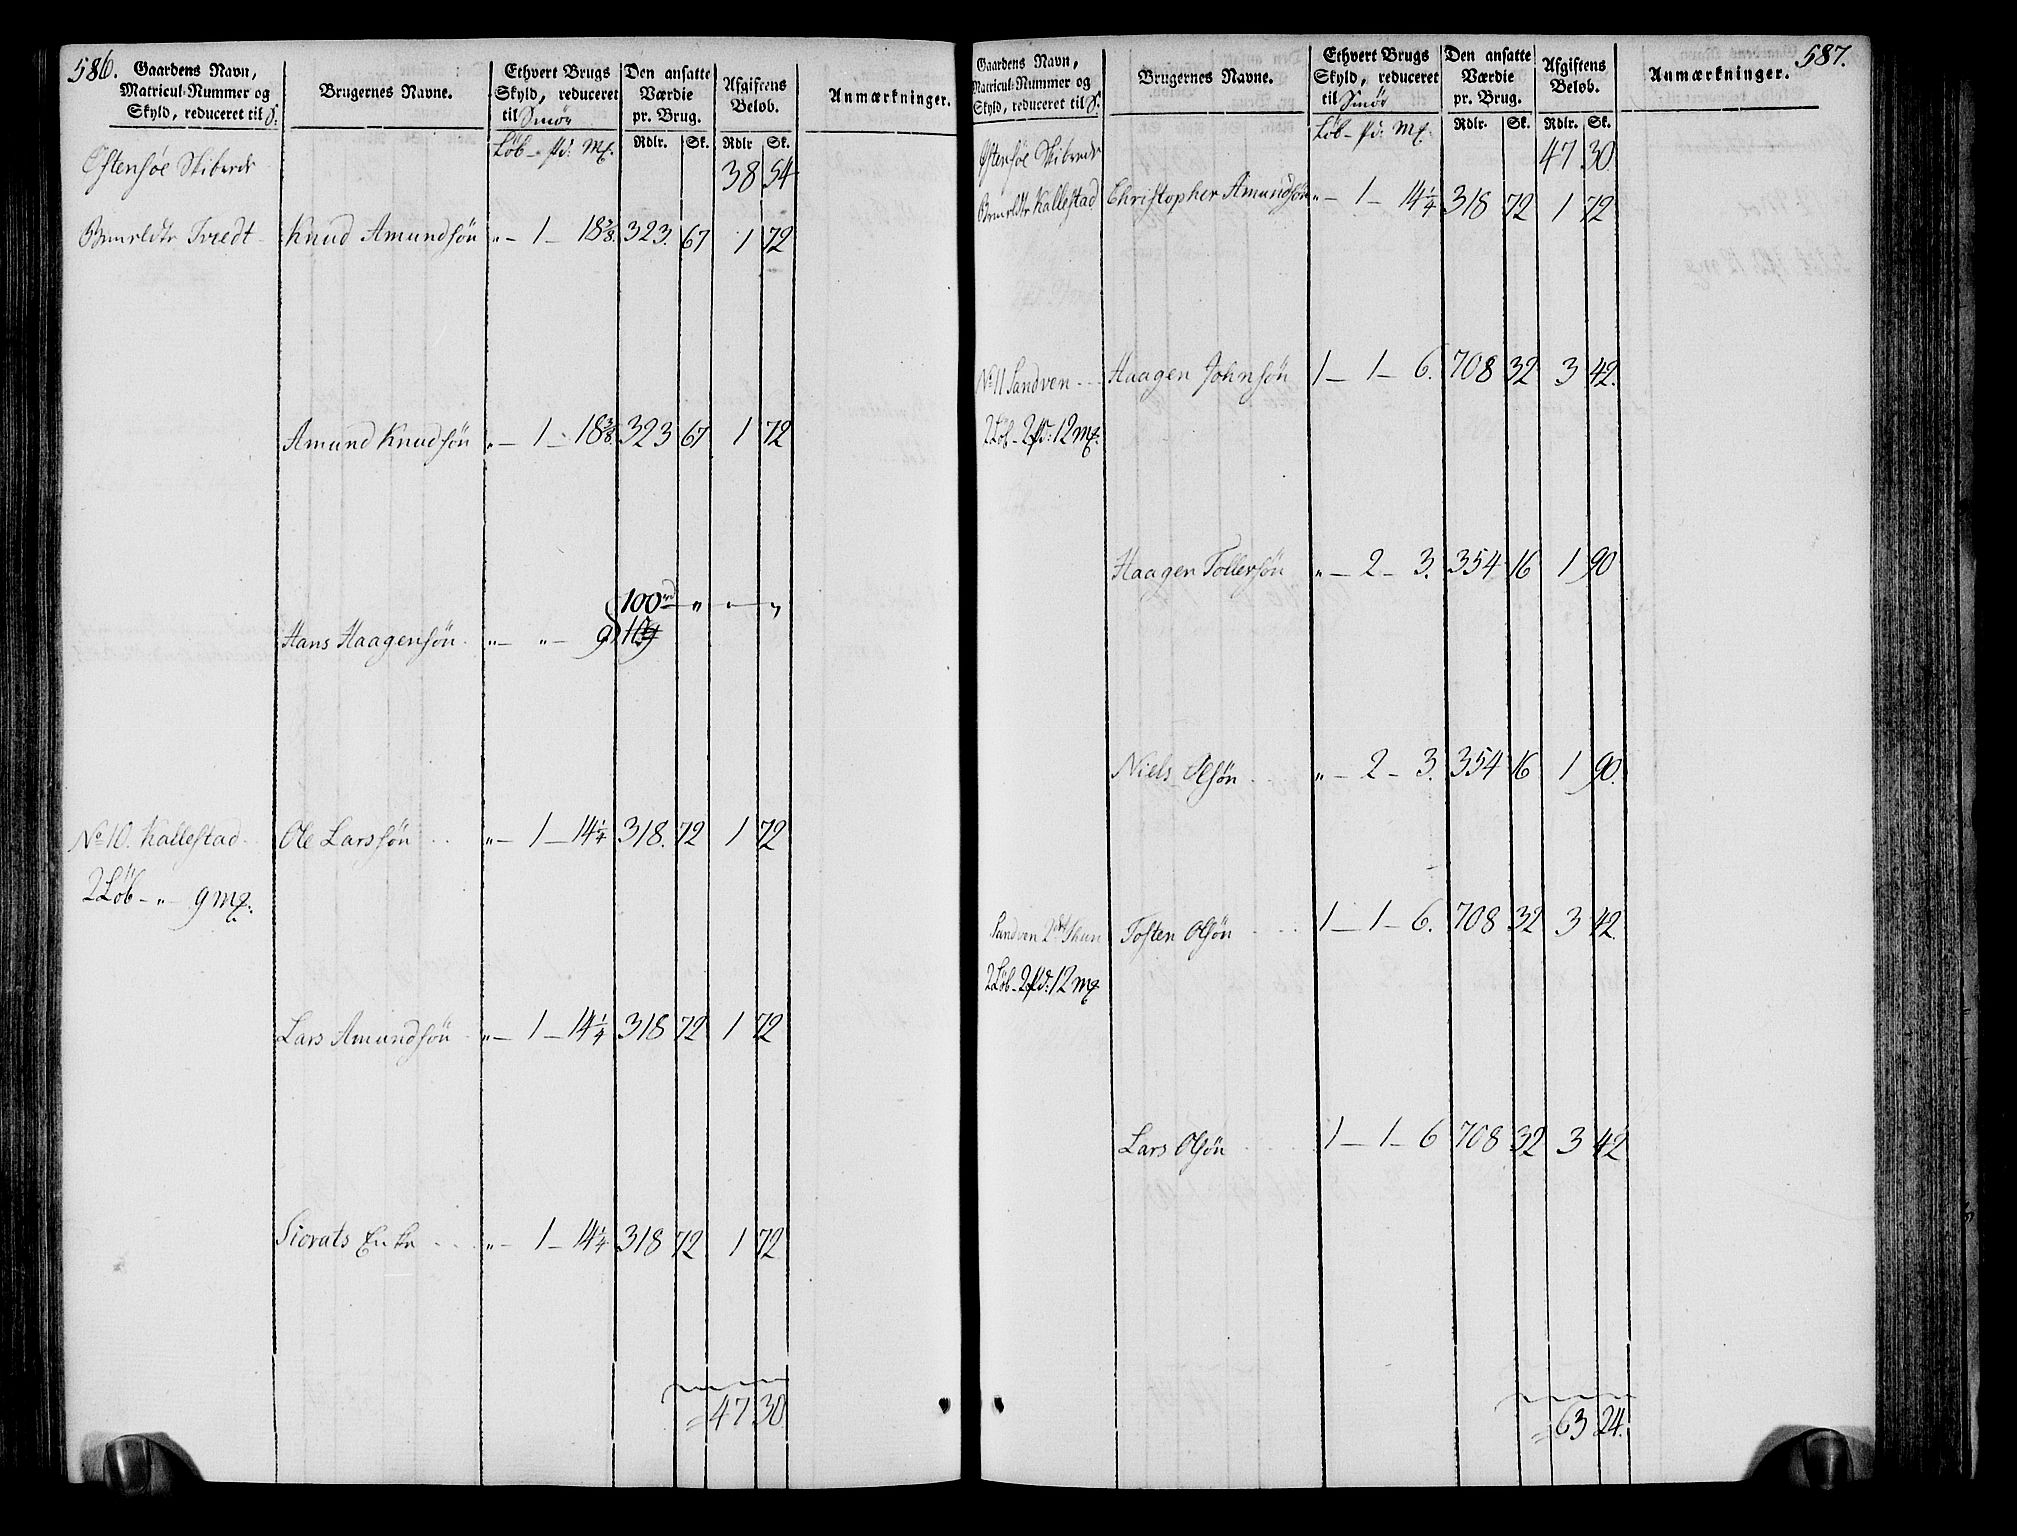 586.
Gaardens Navn,
Matricul-Nummer og
Skyld, reduceret til S:
Brugernes Navne.
Ethvert Brugs
Skyld, reduceret
til Smör
Den ansatte
Værdie
pr. Brug.
Afgiftens
Beløb.
Anmærkninger.
Löb - pd: Mk:
Rdlr. Sk. Rdlr Sk.
Östensöe Skibrede 38 54
Tvedt Knud Amundsön „ — 1 — 18 3/8. 323. 67 1 72
Amund Knudsön „ — 1 — 18 3/8. 323 67 1 72
100 rd „ — „
Hans Haagensön „ — „ — 9
No 10. Kallestad Ole Larssön „ — 1 — 14 1/4 318. 72 1 72
2 Löb - „ - 9 Mk:
Lars Amundsön „ — 1 — 14 1/4 318 72 1 72
Siovats Enke „ — 1 — 14 1/4 318 72 1 72
= 47 30
587.
Gaardens Navn,
Matricul-Nummer og
Skyld, reduceret til S:
Brugernes Navne.
Ethvert Brugs
Skyld, reduceret
til Smör
Den ansatte
Værdie
pr. Brug.
Afgiftens
Beløb.
Anmærkninger.
Löb - pd: Mk:
Rdlr. Sk. Rdlr. Sk.
Östensöe Skibrede 47 30
Kallestad Christopher Amundsön „ — 1 — 14 1/4 318 72 1 72
No 11 Sandven Haagen Johnsön 1 — 1 — 6. 708 32 3 42.
2 Löb - 2 pd: 12 Mk:
Haagen Tollefsön „ — 2 — 3. 354 16 1 90
Niels Olsön „ — 2 — 3. 354 16 1 90.
Sandven 2det Tosten Olsön 1 — 1 — 6. 708 32 3 42
2 Löb - 2 pd: 12 Mk
Lars Olsön 1 — 1 — 6 708 32 3 42
= 63 24.